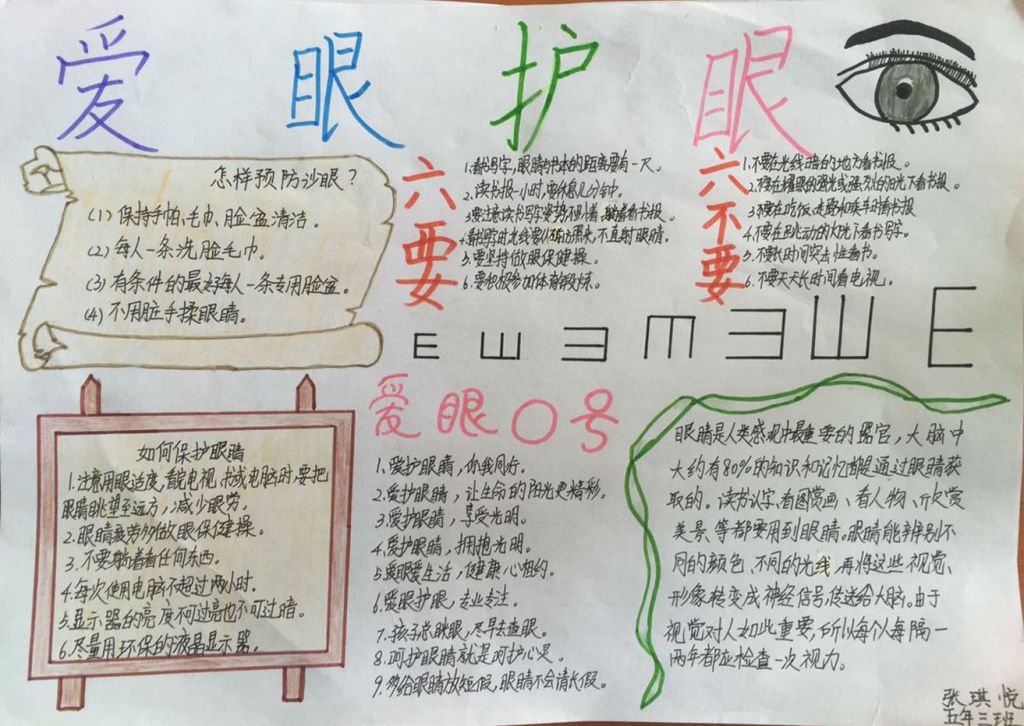 爱眼护眼
怎样预防沙眼？
(1) 保持手帕、毛巾、脸盆清洁。
(2) 每人一条洗脸毛巾。
(3) 有条件的最好每人一条专用脸盆。
(4) 不用脏手揉眼睛。
六要
1.看书写字,眼睛与书本的距离要有一尺。
2.读书报一小时,要休息几分钟。
3.要注意读书写字姿势,不 着、躺着看书报。
4.看书写字光线要从 方照来,不直射眼睛。
5.要坚持做眼保健操。
6.要积极参加体育锻炼。
六不要
1.不要在光线暗的地方看书报。
2.不要在耀眼的强光或强烈的日光下看书报。
3.不要在吃饭、走路和乘车时看书报
4.不要在跳动的灯光下看书写字。
5.不要长时间突击性看书。
6.不要天天长时间看电视。
E Ш Ǝ E Ǝ Ш E
如何保护眼睛
1.注意用眼适度,看完电视、书或电脑时,要把
眼睛眺望至远方,减少眼劳。
2.眼睛疲劳多做眼保健操。
3.不要躺着看任何东西。
4.每次使用电脑不超过两小时。
5.显示器的亮度不可过亮也不可过暗。
6.尽量用环保的液晶显示器。
爱眼〇号
1.爱护眼睛,你我同行。
2.爱护眼睛,让生命的阳光更精彩。
3.爱护眼睛,享受光明。
4.爱护眼睛,拥抱光明。
5.爱眼爱生活,健康心相约。
6.爱眼护眼,专业专注。
7.孩子总眯眼,尽早去查眼。
8.呵护眼睛就是呵护心灵。
9.多给眼睛放短假,眼睛不会请长假。
眼睛是人类感观中最重要的器官,大脑中
大约有80%的知识和记忆都是通过眼睛获
取的。读书认字、看图赏画、看人物、欣赏
美景、等都要用到眼睛。眼睛能辨别不
同的颜色、不同的光线,再将这些视觉、
形象转变成神经信号,传送给大脑。由于
视觉对人如此重要,所以每个人每隔一
两年都应检查一次视力。
张琪悦
五年三班